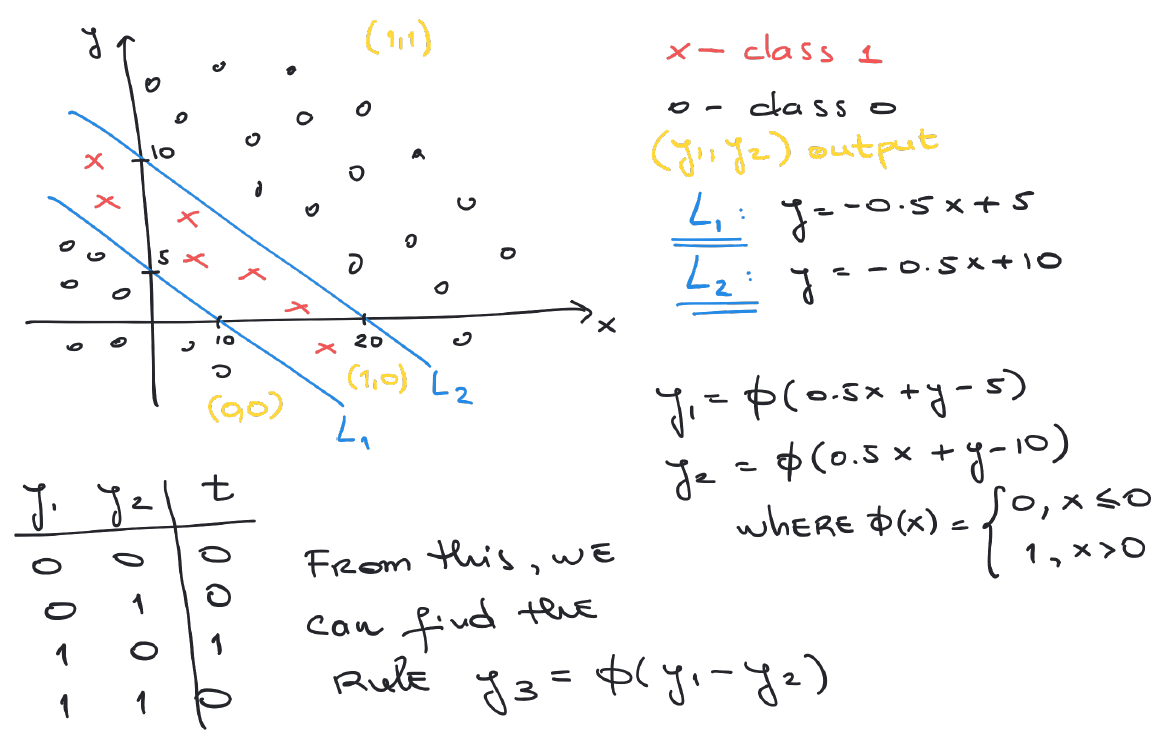 y
(1,1)
10
5
10
20
x
(1,0)
(0,0)
L₂
L₁
x — class 1
o - class 0
(y₁, y₂) output
L₁: y = -0.5x + 5
L₂: y = -0.5x + 10
y₁ = ϕ(0.5x + y - 5)
y₂ = ϕ(0.5x + y - 10)
WHERE ϕ(x) = { 0, x ≤ 0
1, x > 0
y₁ y₂ t
0 0 0
0 1 0
1 0 1
1 1 0
From this, WE
can find the
RulE y₃ = ϕ(y₁ - y₂)